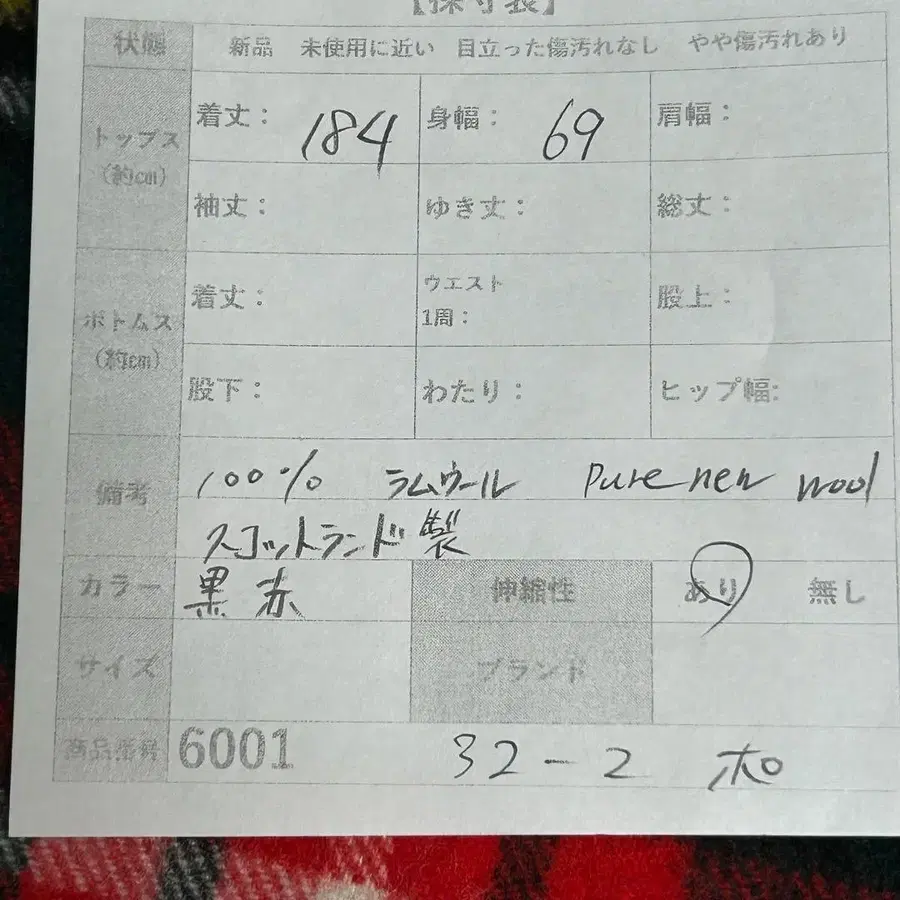 【採寸表】
状態 新品 未使用に近い 目立った傷汚れなし やや傷汚れあり
トップス (約cm)
着丈: 184 身幅: 69 肩幅:
袖丈: ゆき丈: 総丈:
ボトムス (約cm)
着丈: ウエスト 1周: 股上:
股下: わたり: ヒップ幅:
備考 100% ラムウール Pure new wool
スコットランド製
カラー 黒 赤 伸縮性 あり 無し
サイズ ブランド
商品番号 6001 32-2 ホ